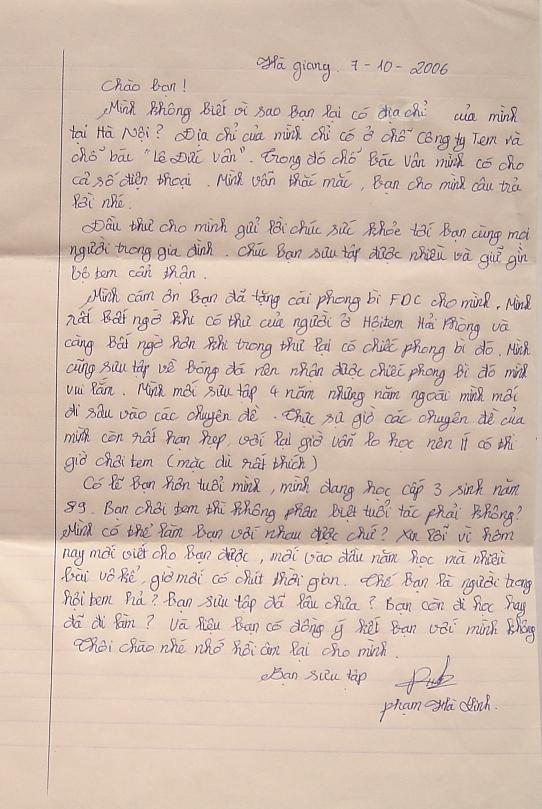 Hà giang. 7-10-2006
Chào bạn!
Mình không biết vì sao Bạn lại có địa chỉ của mình
tại Hà Nội? Địa chỉ của mình chỉ có ở chỗ công ty Tem và
chỗ bác "Lê Đức Vân". Trong đó chỗ Bác Vân mình có cho
cả số điện thoại. Mình vẫn thắc mắc, Bạn cho mình câu trả
lời nhé.
Đầu thư cho mình gửi lời chúc sức khỏe tới Bạn cùng mọi
người trong gia đình. Chúc Bạn sưu tập được nhiều và giữ gìn
bộ tem cẩn thận.
Mình cám ơn Bạn đã tặng cái phong bì FDC cho mình. Mình
rất Bất ngờ khi có thư của người ở Hội tem Hải Phòng và
càng Bất ngờ hơn khi trong thư lại có chiếc phong bì đó. Mình
cũng sưu tập về bóng đá nên nhận được chiếc phong bì đó mình
vui lắm. Mình mới sưu tập 4 năm nhưng năm ngoái mình mới
đi sâu vào các chuyên đề. Thực sự giờ các chuyên đề của
mình còn rất hạn hẹp, với lại giờ vẫn lo học nên ít có thì
giờ chơi tem (mặc dù rất thích)
Có lẽ Bạn hơn tuổi mình, mình đang học cấp 3 sinh năm
89. Bạn chơi tem thì không phân biệt tuổi tác phải không?
Mình có thể làm Bạn với nhau được chứ? Xin lỗi vì hôm
nay mới viết cho Bạn được, mới vào đầu năm học mà nhiều
bài vô kể, giờ mới có chút thời gian. Thế Bạn là người trong
hội tem hả? Bạn sưu tập đã lâu chưa? Bạn còn đi học hay
đã đi làm? Và liệu Bạn có đồng ý kết Bạn với mình không
Thôi chào nhé nhớ hồi âm lại cho mình.
Bạn sưu tập
phạm Hà Ninh.